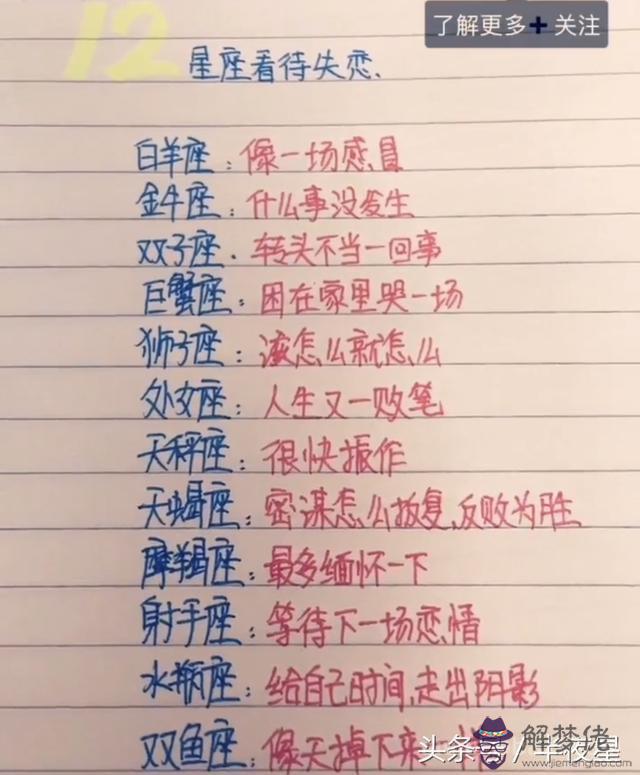 了解更多+ 关注
12
星座看待失恋.
白羊座：像一场感冒
金牛座：什么事没发生
双子座．转头不当一回事
巨蟹座：困在家里哭一场
狮子座：该怎么就怎么
处女座：人生又一败笔
天秤座：很快振作
天蝎座：密谋怎么报复,反败为胜
摩羯座：最多缅怀一下
射手座：等待下一场恋情
水瓶座：给自己时间,走出阴影
双鱼座：像天掉下来
头条号 / 半夜星
解梦佬
www.jiemenglao.com